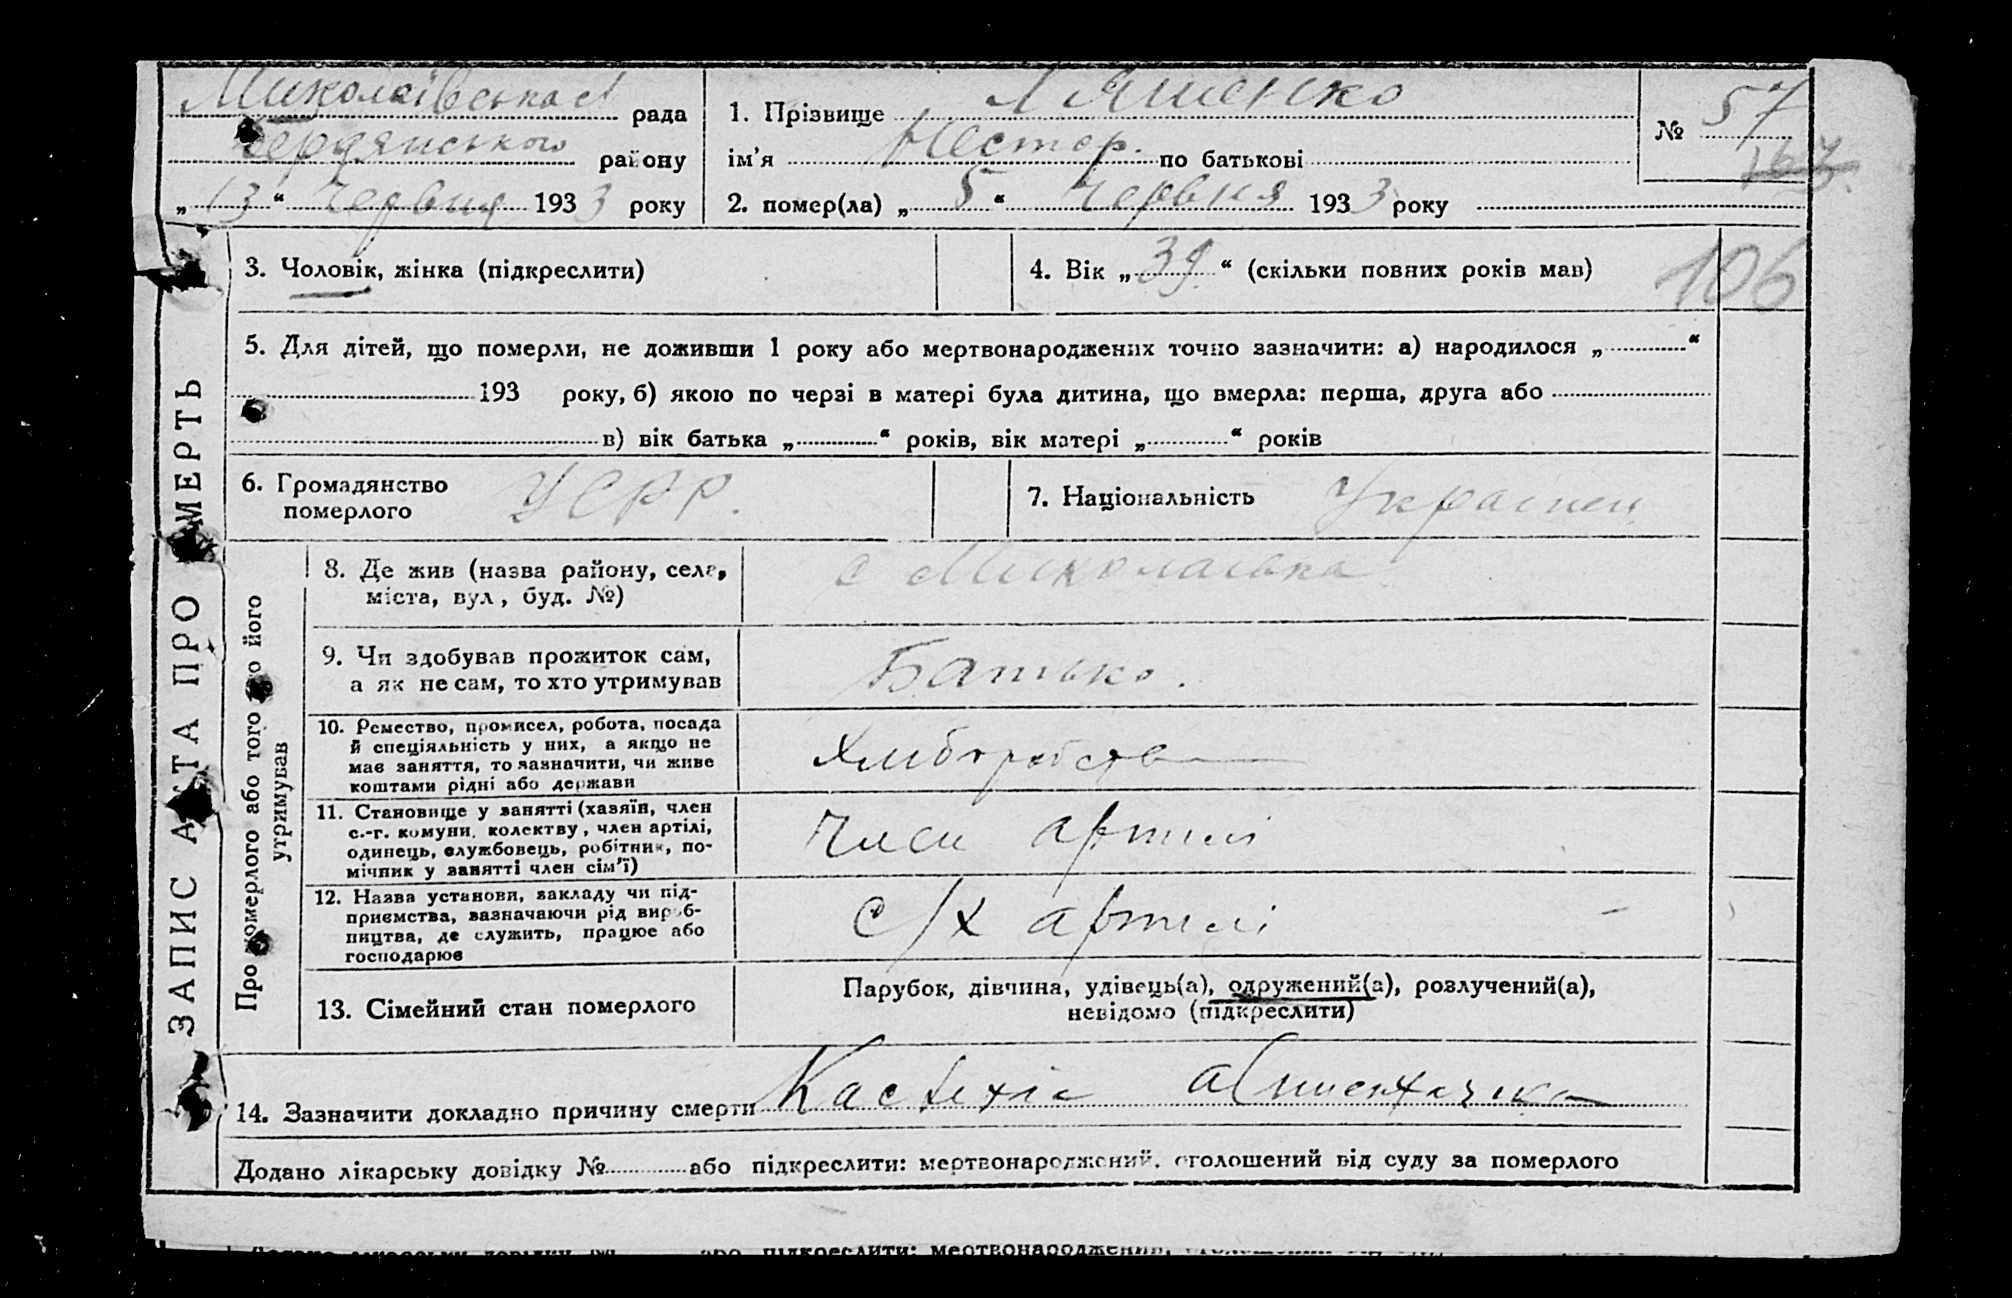 Миколаївська рада
Бердянського району
„ 13 “ Червня 1933 року
1. Прізвище Ляшенко
ім’я Нестор. по батькові
2. помер(ла) „ 5 “ Червня 1933 року
№ 57
167
106
ЗАПИС АКТА ПРО СМЕРТЬ
3. Чоловік, жінка (підкреслити)
4. Вік „ 39 “ (скільки повних років мав)
5. Для дітей, що померли, не доживши 1 року або мертвонароджених точно зазначити: а) народилося „ “
193 року, б) якою по черзі в матері була дитина, що вмерла: перша, друга або
в) вік батька „ “ років, вік матері „ “ років
6. Громадянство
померлого
УСРР.
7. Національність Українец
Про померлого або того хто його
утримував
8. Де жив (назва району, села,
міста, вул, буд. №)
с Миколаівка
9. Чи здобував прожиток сам,
а як не сам, то хто утримував
Батько.
10. Ремество, промисел, робота, посада
й спеціяльність у них, а якщо не
має заняття, то зазначити, чи живе
коштами рідні або держави
Хлиборобство
11. Становище у занятті (хазяїн, член
с.-г. комуни, колектву, член артілі,
одинець, службовець, робітник, по-
мічник у занятті член сім’ї)
Член артилі
12. Назва установи, закладу чи під-
приємства, зазначаючи рід вироб-
ництва, де служить, працює або
господарює
с/х артилі
13. Сімейний стан померлого
Парубок, дівчина, удівець(а), одружений(а), розлучений(а),
невідомо (підкреслити)
14. Зазначити докладно причину смерти
Додано лікарську довідку № або підкреслити: мертвонароджений, оголошений від суду за померлого